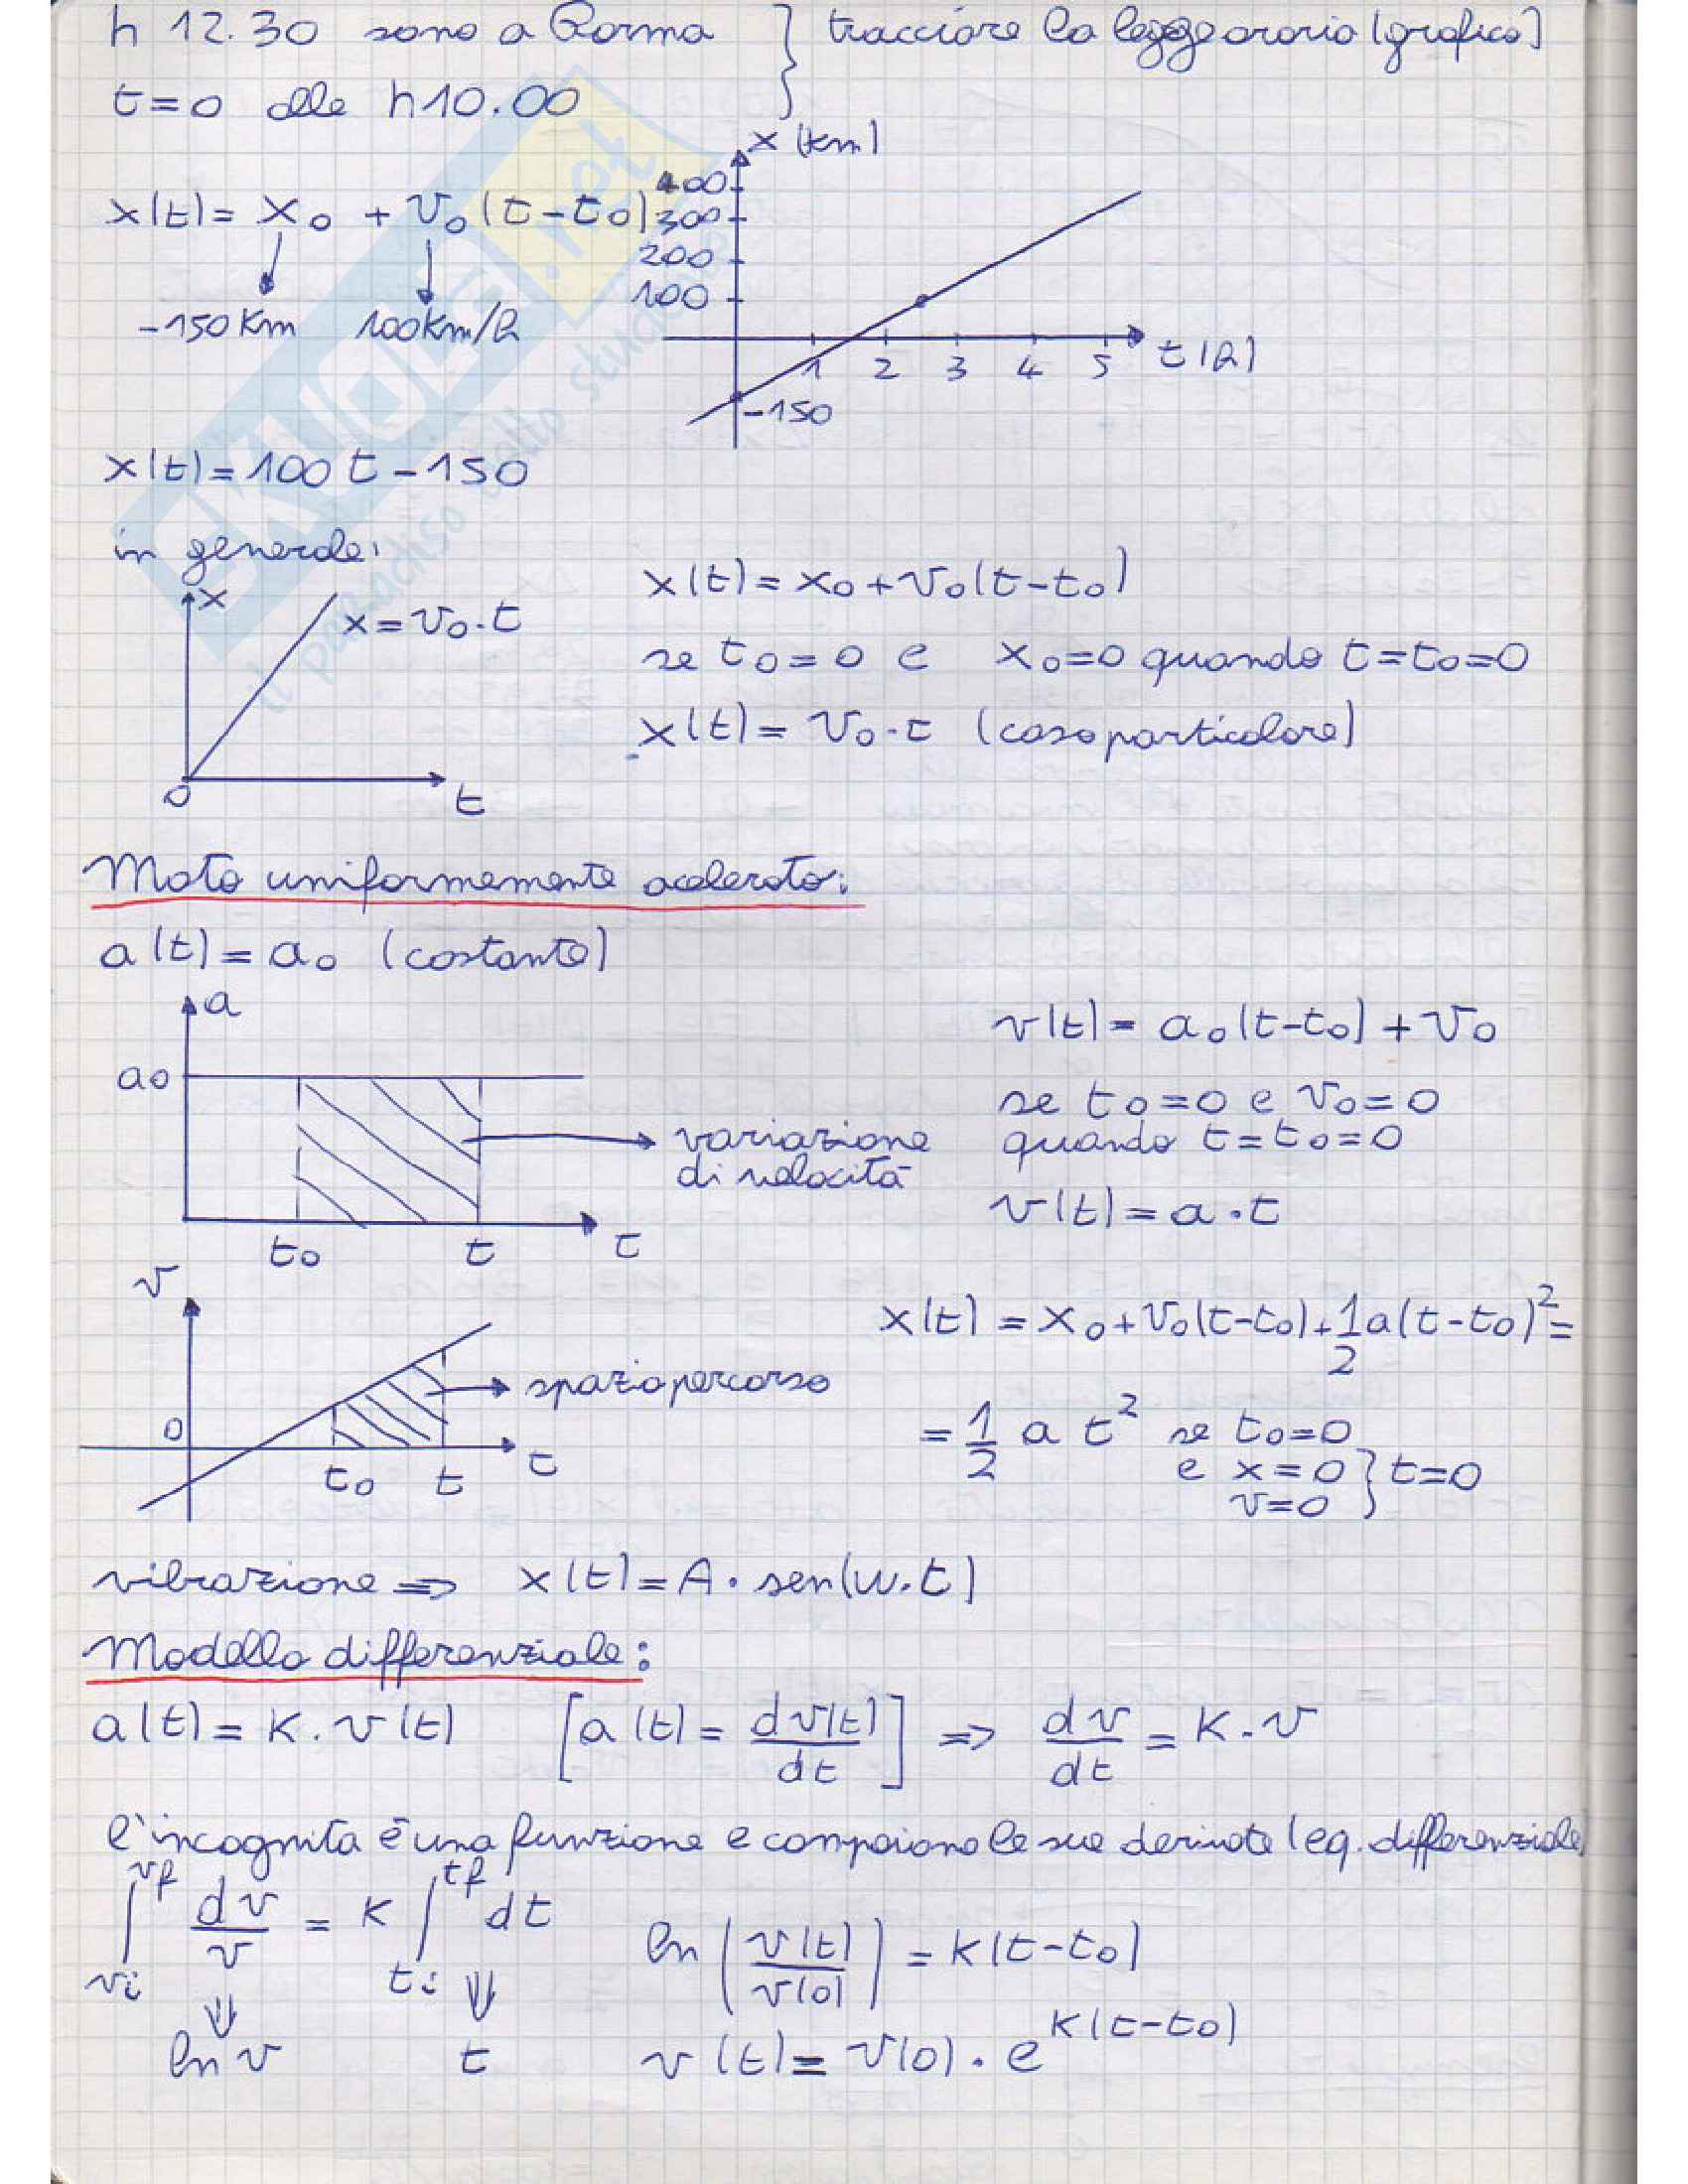 h 12.30 sono a Roma } tracciare la legge oraria (grafico)
t=0 alle h10.00
x(t)= x₀ + v₀(t-t₀)
-150 Km 100Km/h
x (km)
400
300
200
100
1 2 3 4 5 t (h)
-150
x(t)=100 t -150
in generale:
x
x=v₀·t
0
t
x(t)= x₀+v₀(t-t₀)
se t₀=0 e x₀=0 quando t=t₀=0
x(t)= v₀·t (caso particolare)
Moto uniformemente acelerato:
a(t)=a₀ (costante)
a
a₀
variazione
di velocità
t₀ t t
v(t)= a₀(t-t₀)+v₀
se t₀=0 e v₀=0
quando t=t₀=0
v(t)=a·t
v
0
spazio percorso
t₀ t t
x(t) = x₀+v₀(t-t₀)+1/2 a(t-t₀)²=
=1/2 a t² se t₀=0
e x=0 } t=0
v=0
vibrazione => x(t)=A·sen(w.t)
Modello differenziale:
a(t)=K.v(t) [a(t)= dv(t)/dt] => dv/dt = K.v
l'incognita è una funzione e compaiono le sue derivate (eq. differenziale)
∫vi^vf dv/v = K ∫ti^tf dt
⇓ ⇓
ln v t
ln (v(t)/v(0)) = K(t-t₀)
v(t)= v(0)·e^K(t-t₀)
SKUOLA.net
il paradiso dello studente